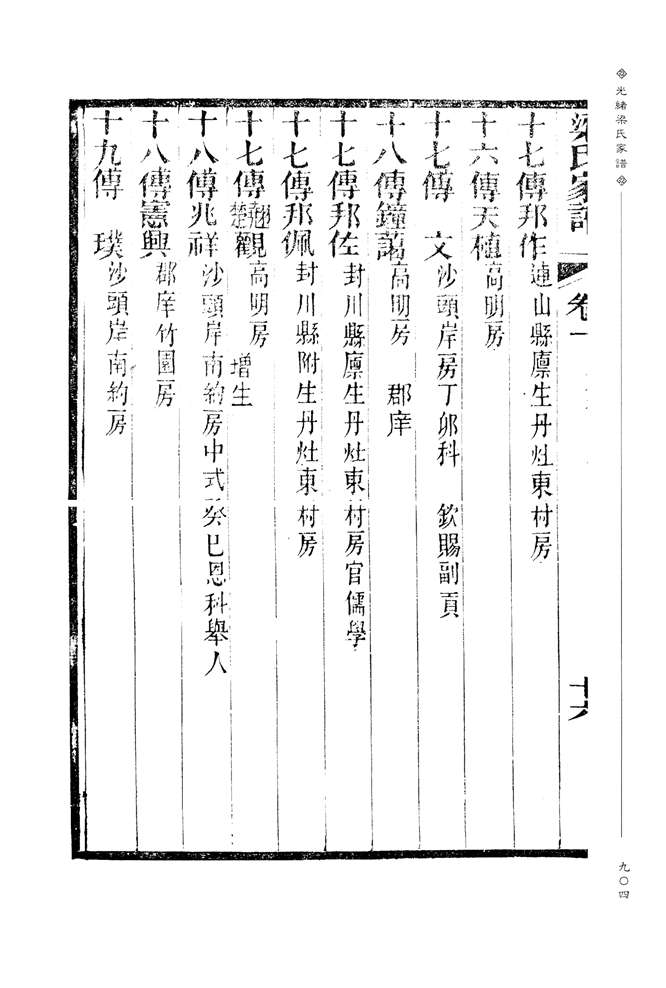 光緒梁氏家譜
九〇四
梁氏家譜 卷一 十六
十七傳邦作連山縣廩生丹灶東村房
十六傳天植高明房
十七傳 文沙頭岸房丁卯科 欽賜副貢
十八傳鐘藹高明房 郡庠
十七傳邦佐封川縣廩生丹灶東村房官儒學
十七傳邦佩封川縣附生丹灶東村房
十七傳翹楚觀高明房 增生
十八傳兆祥沙頭岸南約房中式癸巳恩科舉人
十八傳憲興郡庠竹園房
十九傳 璞沙頭岸南約房